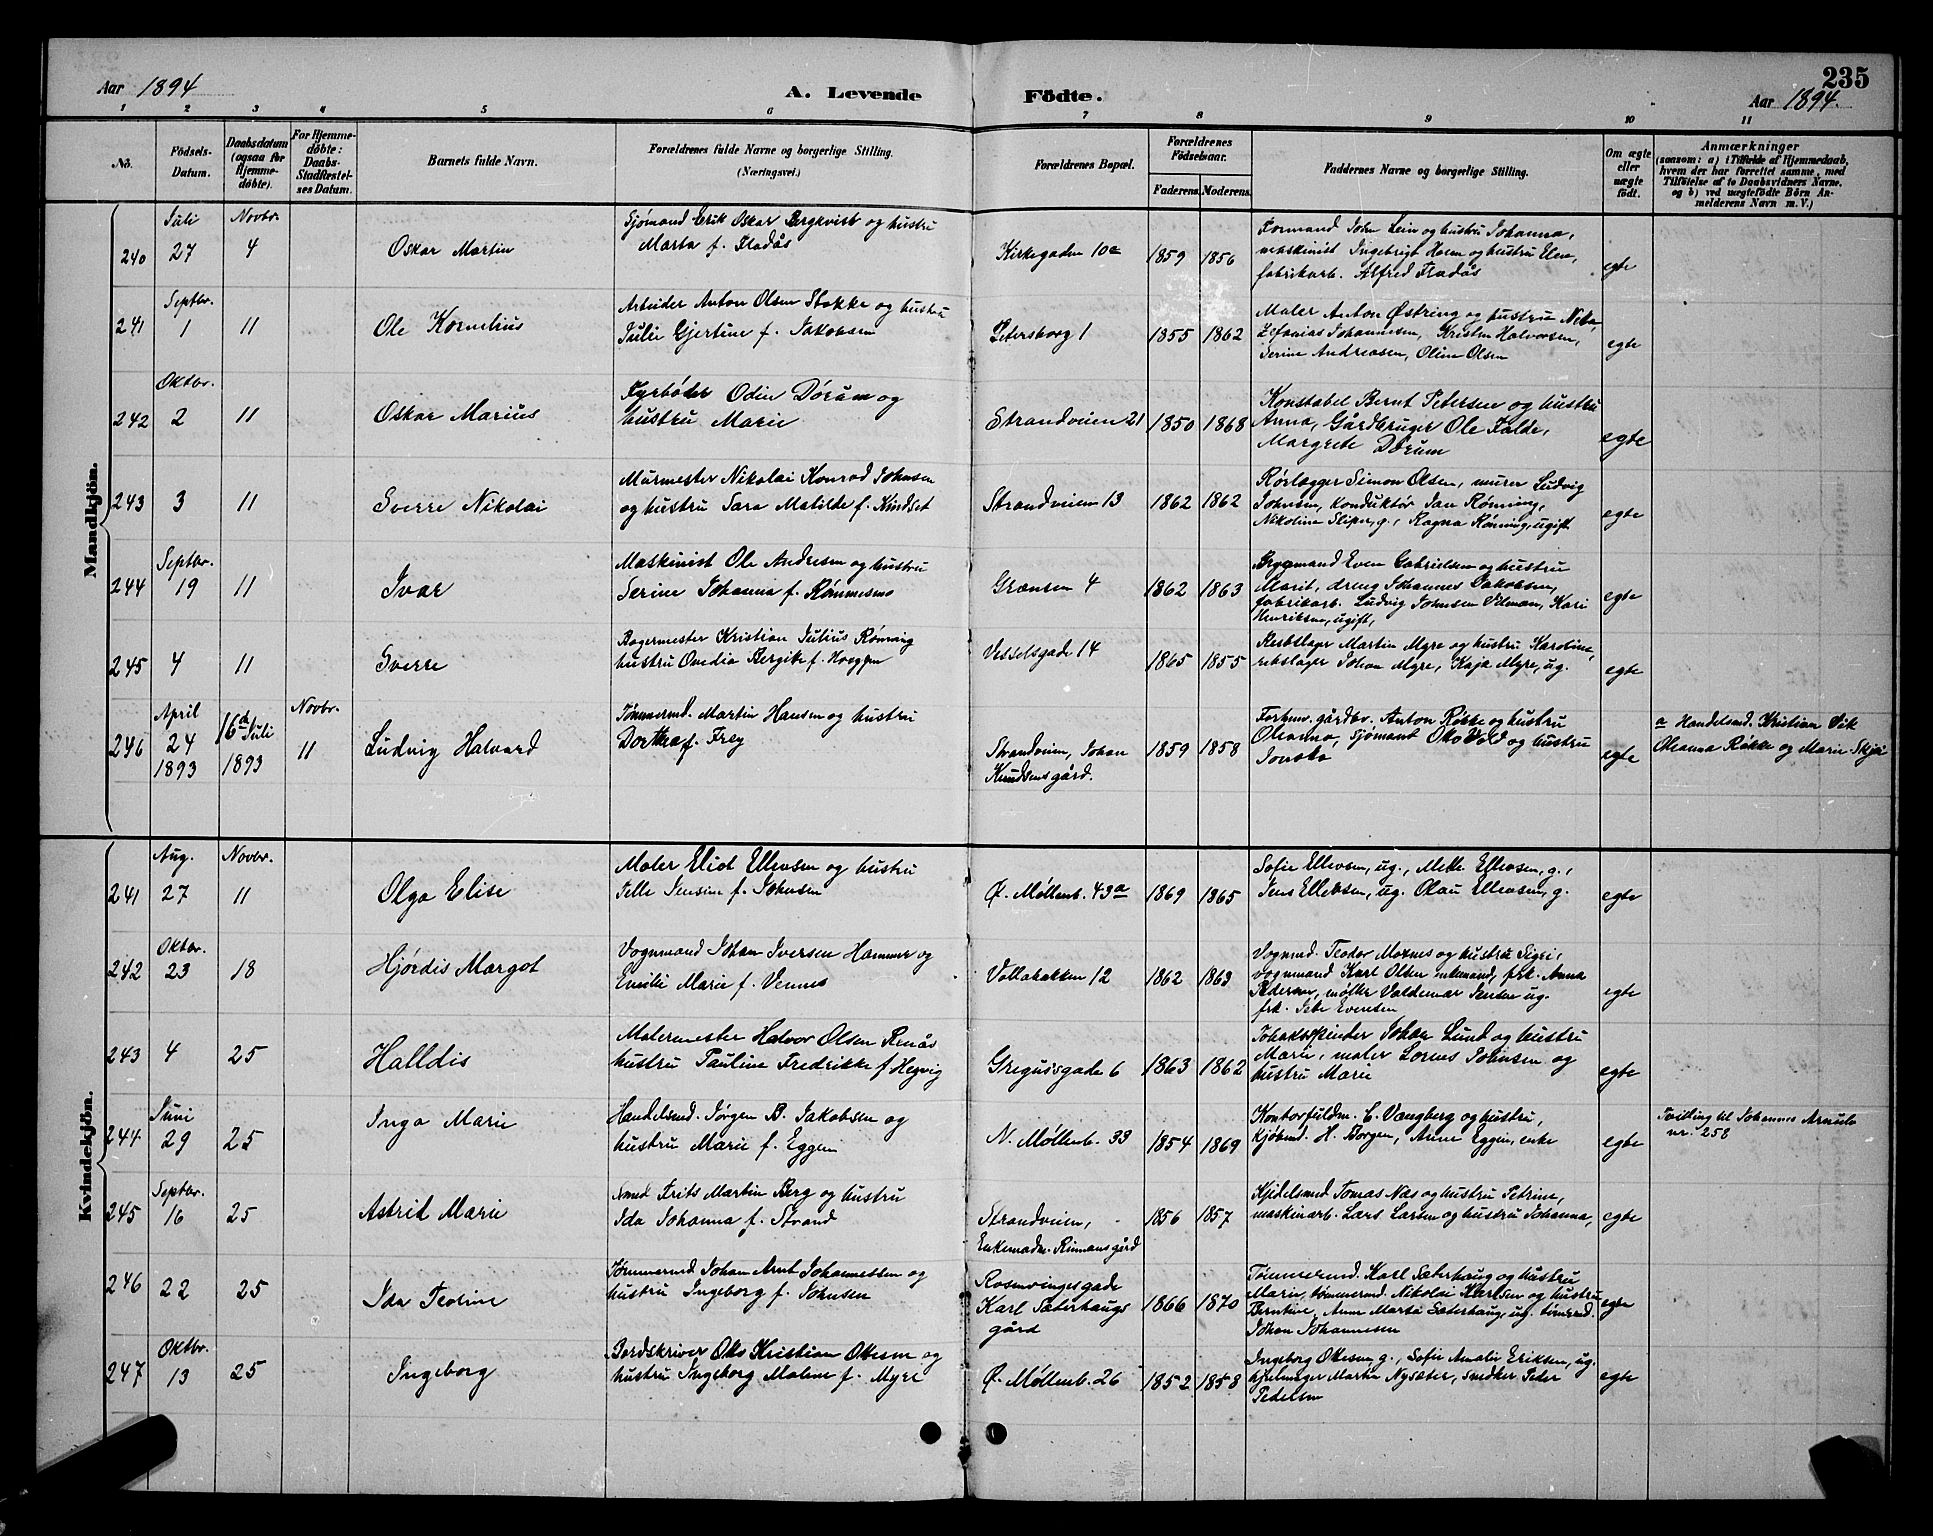 Aar 1894
A. Levende Födte.
235
Aar 1894.
1 2 3 4 5 6 7 8 9 10 11
Nō.
Födsels-
Datum.
Daabsdatum
(ogsaa for
Hjemme-
döbte).
For Hjemme-
döbte:
Daabs-
Stadfæstel-
ses Datum.
Barnets fulde Navn.
Forældrenes fulde Navne og borgerlige Stilling.
(Næringsvei.)
Forældrenes Bopæl.
Forældrenes
Födselsaar.
Faderens.
Moderens.
Faddernes Navne og borgerlige Stilling.
Om ægte
eller
uægte
födt.
Anmærkninger
(saasom: a) i Tilfælde af Hjemmedaab,
hvem der har forrettet samme, med
Tilföielse af to Daabsvidners Navne,
og b) ved uægtefödte Börn An-
melderens Navn m. V.)
Mandkjön.
240
Juli
27
Novbr.
4
Oskar Martin
Sjømand Erik Oskar Bergkvist og hustru
Marta f. Fladås
Kirkegaden 10a
1859
1856
Formand John Lein og hustru Johanna,
maskinist Ingebrigt Hoem og hustru Elen,
fabrikarb. Alfred Fladås
egte
241
Septbr.
1
11
Ole Kornelius
Arbeider Anton Olsen Stokke og hustru
Julie Gjertine f. Jakobsen
Petersborg 1
1855
1862
Maler Anton Østring og hustru Nika,
Zefanias Johannesen, Kristen Halvorsen,
Serine Andreasen, Oline Olsen
egte
242
Oktbr.
2
11
Oskar Marius
Fyrbøder Odin Dørum og
hustru Marie
Strandveien 21
1850
1868
Konstabel Bernt Petersen og hustru
Anna, Gårdbruger Ole Falde,
Margrete Dørum
egte
243
3
11
Sverre Nikolai
Murmester Nikolai Konrad Johnsen
og hustru Sara Matilde f. Kindset
Strandveien 13
1862
1862
Rørlægger Simon Olsen, murer Ludvig
Johnsen, konduktør Jan Rønning,
Nikoline Sliper, g., Ragna Rønning, ugift
egte
244
Septbr.
19
11
Ivar
Maskinist Ole Andresen og hustru
Serine Johanna f. Rømmesmo
Grænsen 4
1862
1863
Brygmand Even Gabrielsen og hustru
Marit, dreng Johannes Jakobsen,
fabrikarb. Ludvig Johnsen Vilman, Kari
Henriksen, ugift,
egte
245
4
11
Sverre
Bagermester Kristian Julius Rønning
hustru Ovedia Bergite f. Hoeggen
Vesselsgade 14
1865
1855
Rebslager Martin Myre og hustru Karoline,
rebslager Johan Myre, Kaja Myre, ug.
egte
246
April
24
1893
16de Juli
1893
Novbr.
11
Ludvig Halvard
Tømmermd. Martin Hansen og hustru
Dorthea f. Frey
Strandveien, Johan
Knudsensgård.
1859
1858
Forhenv. gårdbr. Anton Røkke og hustru
Oleanna, Sjømand Oto Vold og hustru
egte
a Handelsmd. Kristian Vik
Oleanna Røkke og Marie Skjei
Kvindekjön.
241
Aug.
27
Novbr.
11
Olga Elise
Maler Eliot Ellevsen og hustru
Pelle Jensine f. Johnsen
Ø. Møllenb. 43a
1869
1865
Sofie Ellevsen, ug., Mette Ellevsen, g.,
Jens Ellevsen, ug. Olau Ellevsen, g.
egte
242
Oktbr.
23
18
Hjørdis Margot
Vognmand Johan Iversen Hammer og
Emilie Marie f. Vennes
Vollabakken 12
1862
1863
Vognmd. Teodor Moxnes og hustru Sigri,
vognmand Karl Olsen enkemand, frk. Anna
Pedersen, møller Valdemar Jensen ug.
frk. Evensen
egte
243
4
25
Halldis
Malermester Halvor Olsen Renås
hustru Pauline Fredrikke f Hegvig
Gregusgade 6
1863
1862
Tobakspinder Johan Lund og hustru
Marie, maler Lornts Johnsen og
hustru Marie
egte
244
Juni
29
25
Inga Marie
Handelsmd. Jørgen B. Jakobsen og
hustru Marie f. Eggen
N. Møllenb. 33
1854
1869
Kontorfuldm. C. Vangberg og hustru,
kjøbmd. H. Borgen, Anne Eggen, enke
egte
Tvilling til Johannes Arnulv
nr. 258
245
Septbr.
16
25
Astrid Marie
Smed Frits Martin Berg og hustru
Ida Johanna f. Strand
Strandveien,
Enkemadm. Riimansgård
1856
1857
Kjedelsmed Tomas Næs og hustru Petrine,
maskinarb. Lars Larsen og hustru Johanna,
egte
246
22
25
Ida Teoline
Tømmermd Johan Arnt Johannessen og
hustru Ingeborg f. Johnsen
Rosenvingesgade
Karl Sæterhaugs
gård
1866
1870
Tømmermd. Karl Sæterhaug og hustru
Marie, tømmermd. Nikolai Karlsen og hustru
Berntine, Anne Marta Sæterhaug, ug. tømmermd.
Johan Johannesen
egte
247
Oktbr.
13
25
Ingeborg
Bordskriver Oto Kristian Otesen og
hustru Ingeborg Malene f. Myre
Ø. Møllenb. 26
1852
1858
Ingeborg Otesen g., Sofie Amalie Eriksen, ug.
Martin Nysæter, snedker Peter
Pedersen
egte